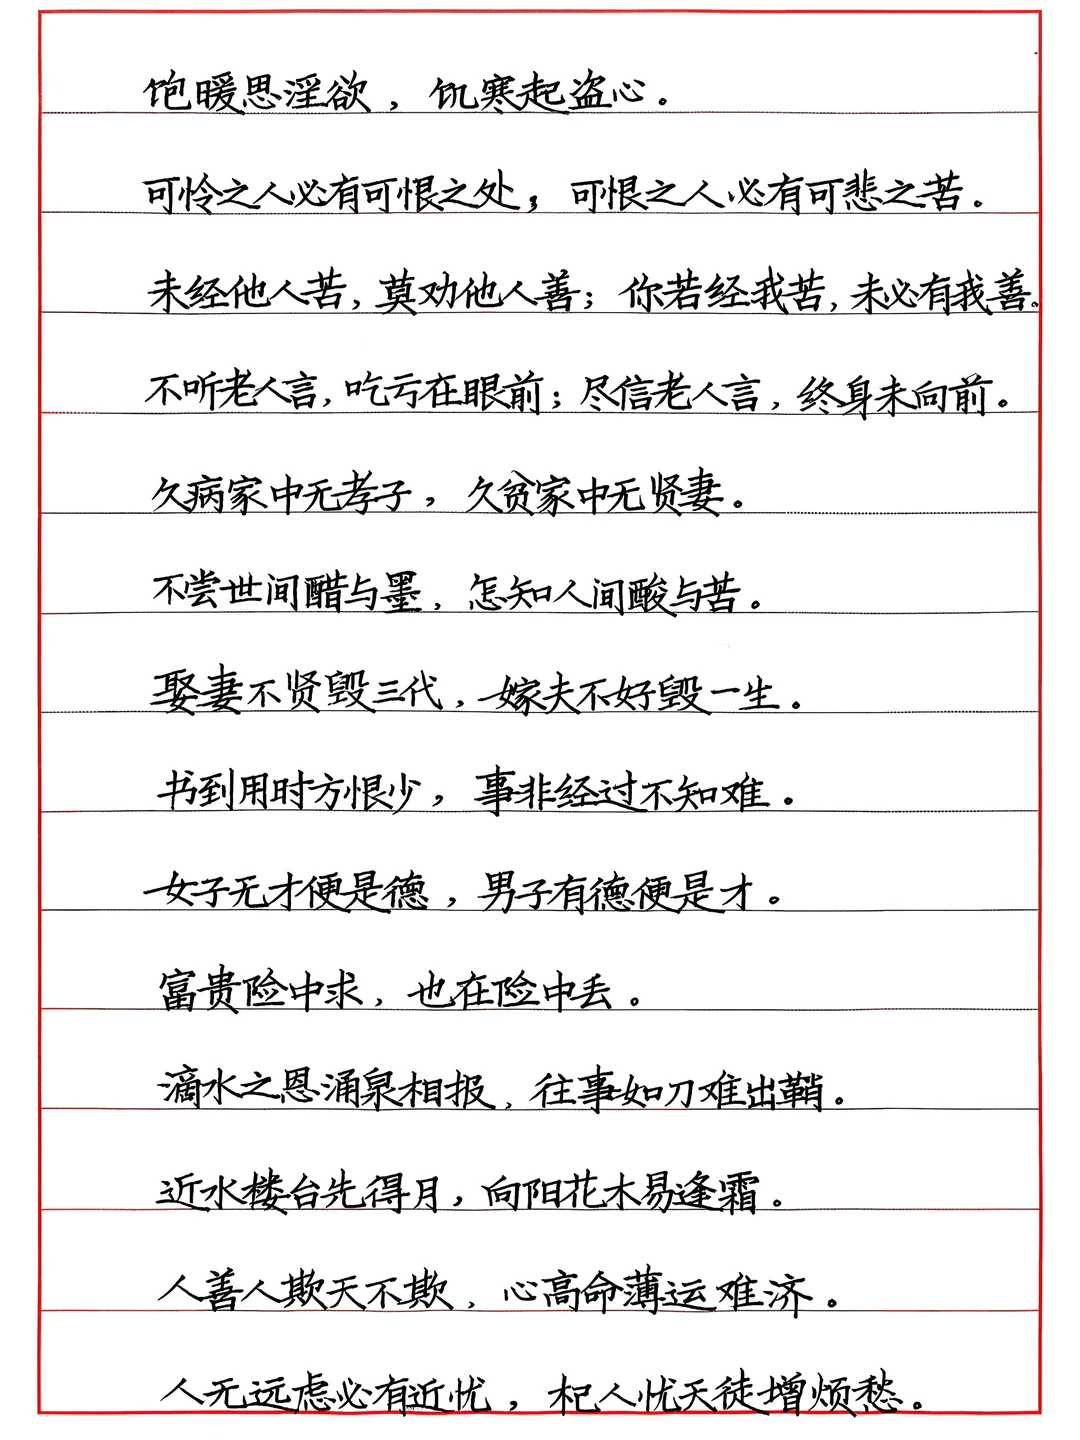 饱暖思淫欲，饥寒起盗心。
可怜之人必有可恨之处，可恨之人必有可悲之苦。
未经他人苦，莫劝他人善；你若经我苦，未必有我善。
不听老人言，吃亏在眼前；尽信老人言，终身未向前。
久病家中无孝子，久贫家中无贤妻。
不尝世间醋与墨，怎知人间酸与苦。
娶妻不贤毁三代，嫁夫不好毁一生。
书到用时方恨少，事非经过不知难。
女子无才便是德，男子有德便是才。
富贵险中求，也在险中丢。
滴水之恩涌泉相报，往事如刀难出鞘。
近水楼台先得月，向阳花木易逢霜。
人善人欺天不欺，心高命薄运难济。
人无远虑必有近忧，杞人忧天徒增烦愁。